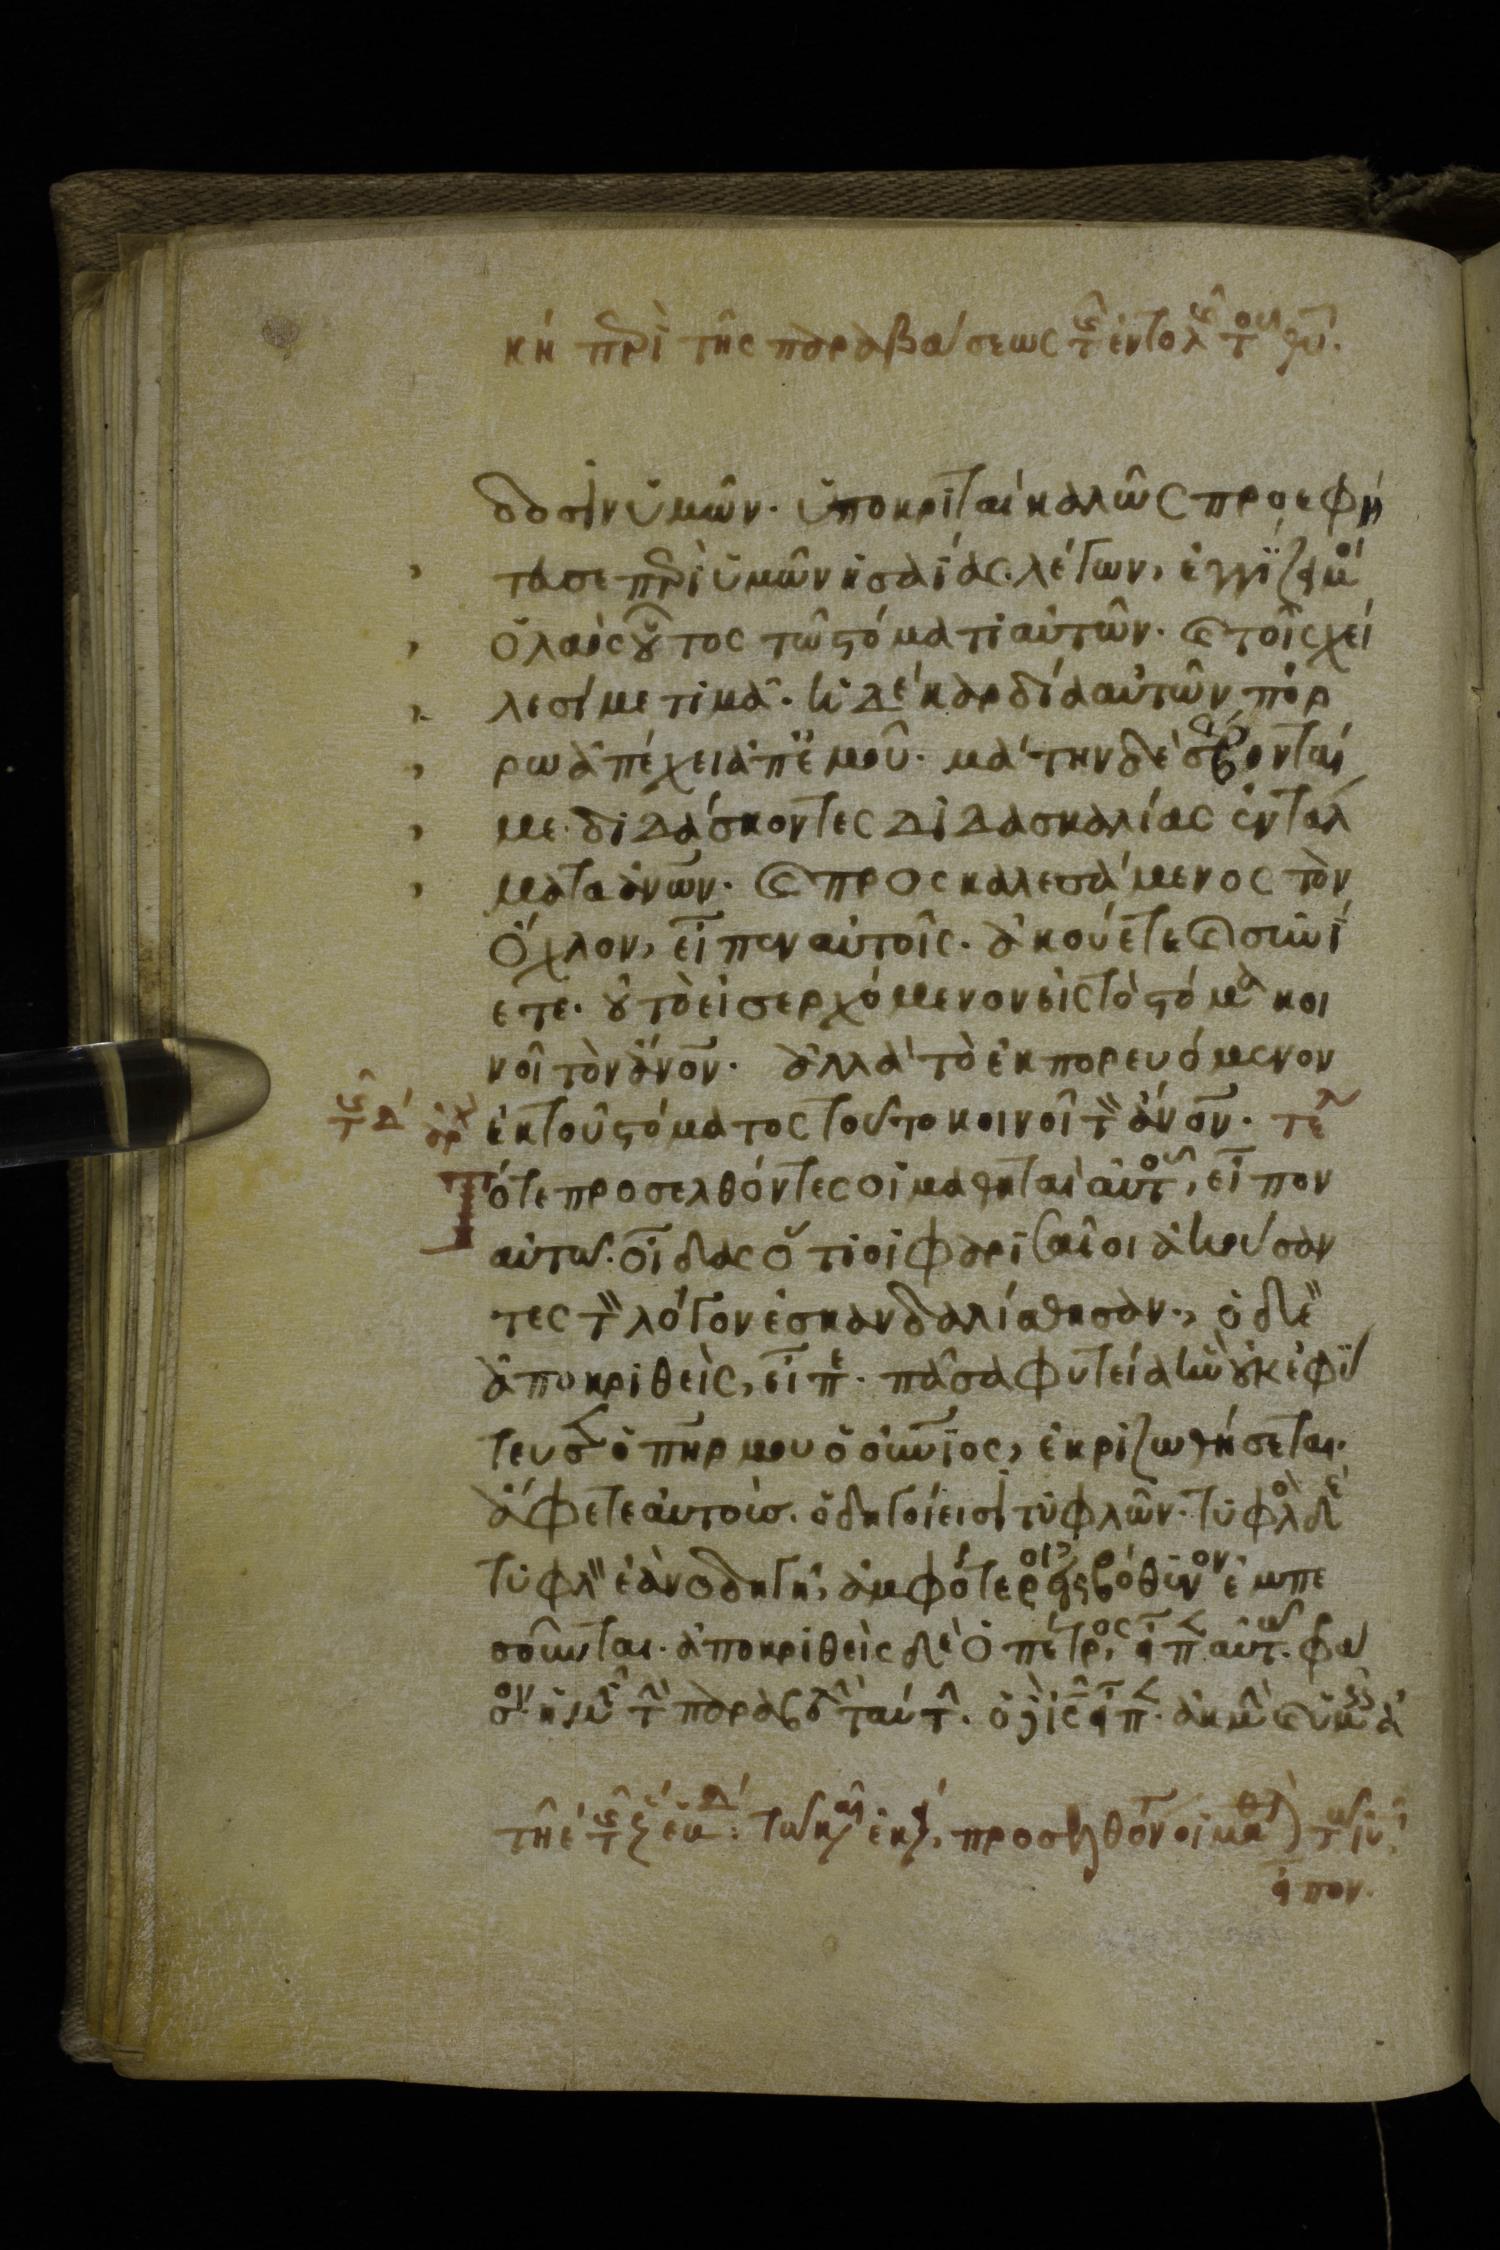 κη περὶ τῆς παραβάσεως τῶν ἐντολῶν τοῦ θυ.
δοσιν ὑμῶν. ὑποκριταὶ καλῶς προεφή
τευσε περὶ ὑμῶν ἡσαΐας λέγων, ἐγγίζει μοι
ὁ λαὸς οὗτος τῶ στόματι αὐτῶν. καὶ τοῖς χεί
λεσί με τιμᾶ. ἡ δὲ καρδία αὐτῶν πόρ
ρω ἀπέχει ἀπ' ἐμοῦ. μάτην δὲ σέβονταί
με διδάσκοντες διδασκαλίας ἐντάλ
ματα ἀνων. καὶ προσκαλεσάμενος τὸν
ὄχλον, εἶπεν αὐτοῖς. ἀκούετε καὶ συνί
ετε. οὐ τὸ εἰσερχόμενον εἰς τὸ στόμα κοι
νοῖ τὸν ἄνον. ἀλλὰ τὸ ἐκπορευόμενον
ἐκ τοῦ στόματος τοῦτο κοινοῖ τὸν ἄνον. τελ
τότε προσελθόντες οἱ μαθηταὶ αὐτοῦ, εἶπον
αὐτῶ. οἶδας ὅτι οἱ φαρισαῖοι ἀκούσαν
τες τὸν λόγον ἐσκανδαλίσθησαν, ὁ δὲ
ἀποκριθεὶς, εἶπε. πᾶσα φυτεία ἣν οὐκ ἐφύ
τευσεν ὁ πηρ μου ὁ οὐνιος, ἐκριζωθήσεται.
ἄφετε αὐτοὺς. ὁδηγοί εἰσι τυφλῶν. τυφλὸς δὲ
τυφλὸν ἐὰν ὁδηγῆ, ἀμφότεροι εἰς βόθυνον ἐμπε
σοῦνται. ἀποκριθεὶς δὲ ὁ πέτρος, εἶπεν αὐτῶ. φρά
σον ἡμῖν τὴν παραβολὴν ταύτην. ὁ δὲ ις εἶπεν. ἀκμὴν καὶ ὑμεῖς ἀ
τῶ καιρῶ ἐκείνω, προσῆλθον οἱ μαθηταὶ τῶ ιυ,
εἶπον.